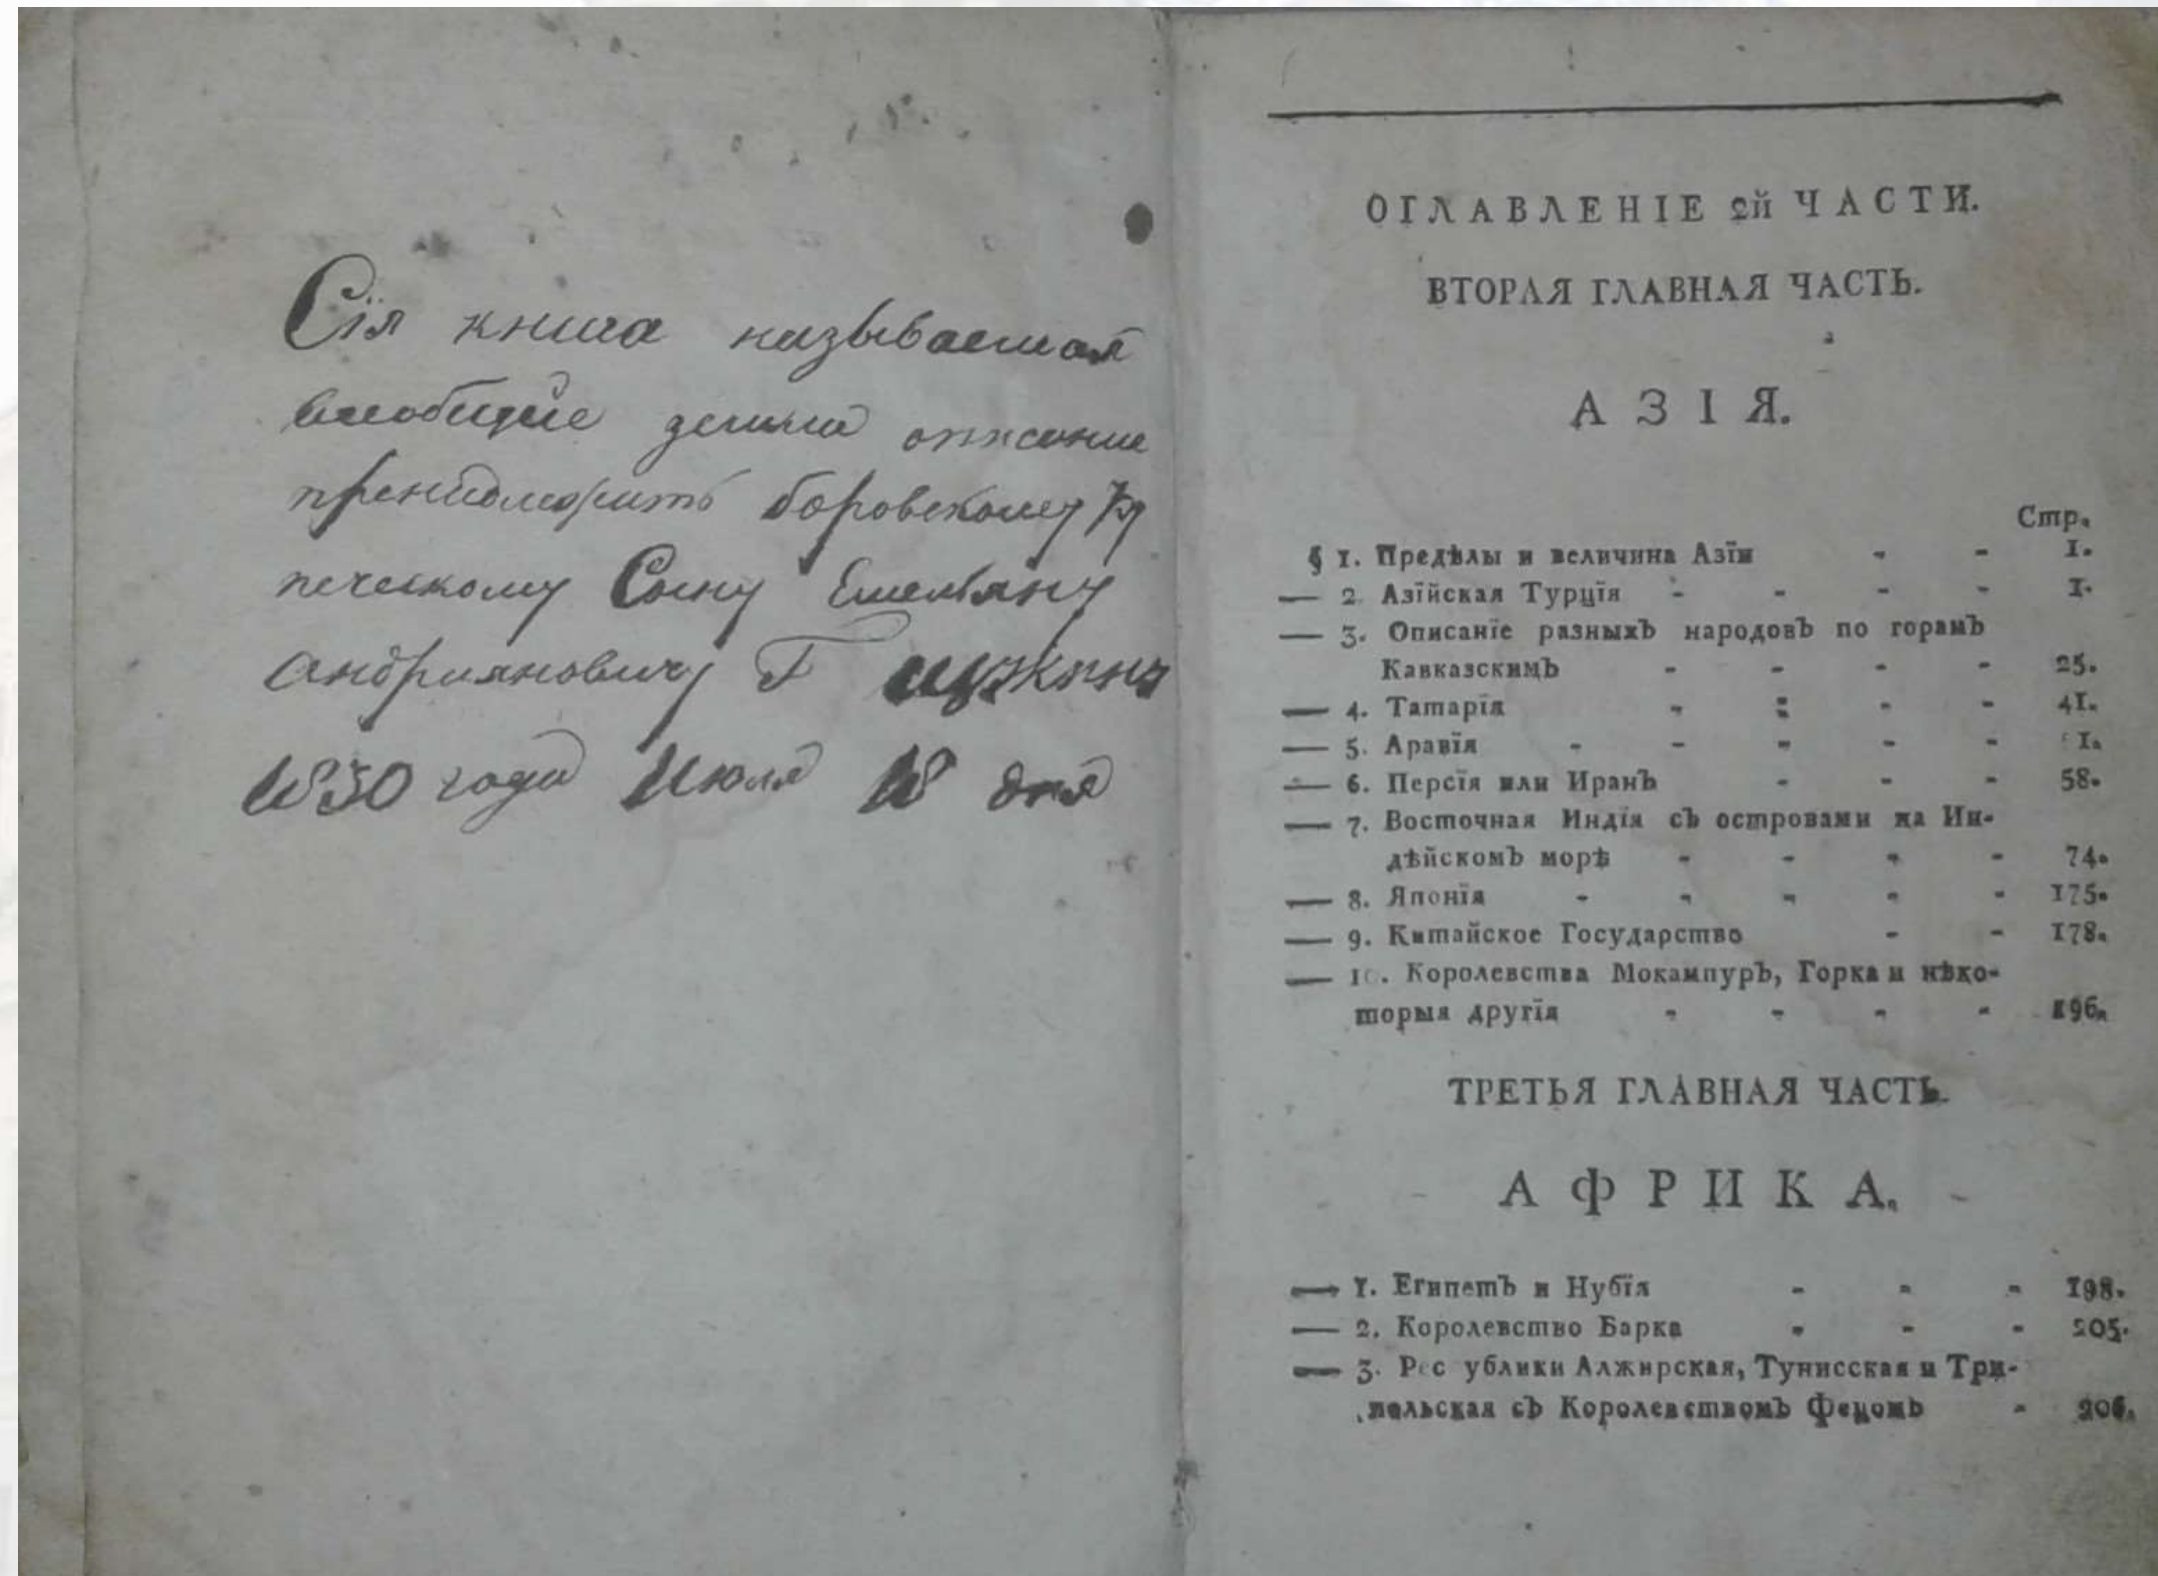 Сія книга называемая
всеобщие земли описание
принадлежитъ боровскому ку
печескому Сыну Емельяну
Андриановичу Г
1830 года Июля 18 дня
ОГЛАВЛЕНІЕ 2й ЧАСТИ.
ВТОРАЯ ГЛАВНАЯ ЧАСТЬ.
АЗІЯ.
Стр.
§ 1. Предѣлы и величина Азїи - - 1.
— 2. Азїйская Турцїя - - - - 1.
— 3. Описанїе разныхъ народовъ по горамъ
Кавказскимъ - - - - 25.
— 4. Татарїя - - - - 41.
— 5. Аравїя - - - - - 1.
— 6. Персїя или Иранъ - - - 58.
— 7. Восточная Индїя съ островами на Ин-
дѣйскомъ морѣ - - - - 74.
— 8. Японїя - - - - - 175.
— 9. Китайское Государство - - 178.
— 10. Королевства Мокампуръ, Горка и нѣко-
торыя другїя - - - - 196.
ТРЕТЬЯ ГЛАВНАЯ ЧАСТЬ.
АФРИКА.
— 1. Египетъ и Нубїя - - - 198.
— 2. Королевство Барка - - - 205.
— 3. Рес ублики Алжирская, Тунисская и Три-
польская съ Королевствомъ Фецомъ - 206.